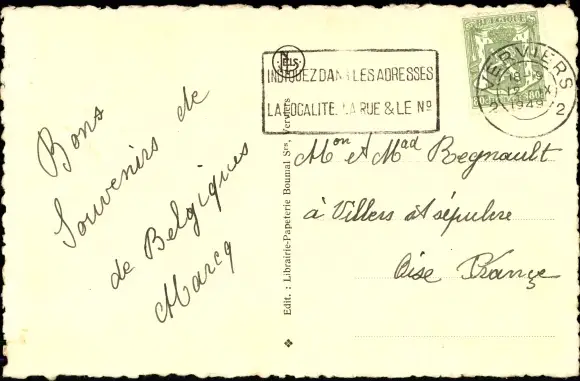 Bons
Souvenirs de
de Belgiques
Marcq
Edit. : Librairie-Papeterie Boumal Srs, Verviers
NELS
INDIQUEZ DANS LES ADRESSES
LA LOCALITE, LA RUE & LE No
BELGIQUE
VERVIERS
18-19
12
1949
2 2
Mon et Mad Regnault
à Villers St sépulcre
Oise France